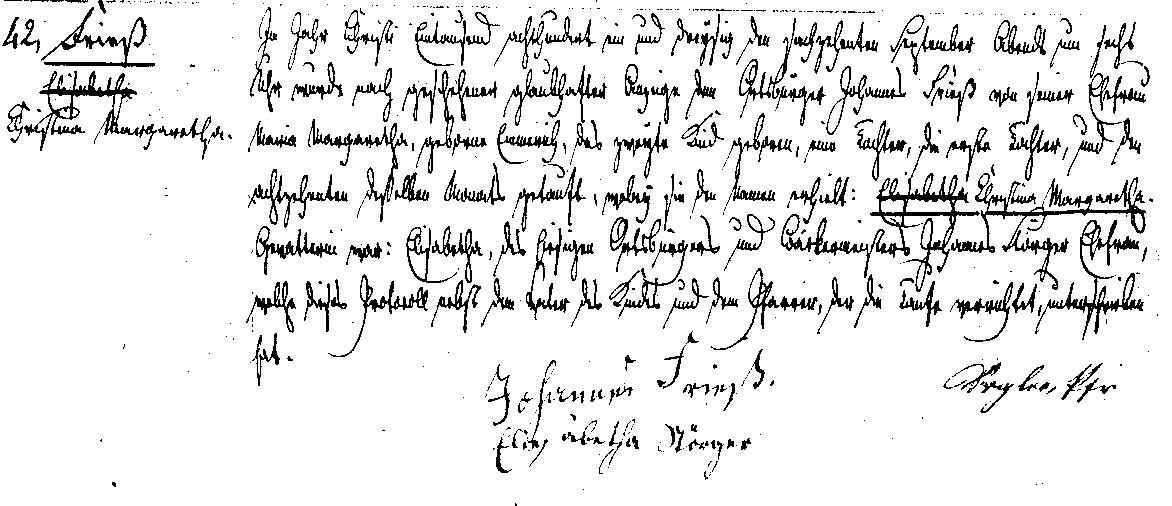 42, Frieß
Elisabetha
Christina Margaretha.
Im Jahr Christi Eintausend achthundert ein und dreyßig den sechzehenten September Abends um sechs
Uhr wurde nach geschehener glaubhafter Anzeige dem Ortsbürger Johannes Frieß von seiner Ehefrau
Maria Margaretha, geborne Emmerich, das zweyte Kind geboren, eine Tochter, die erste Tochter, und den
achtzehenten desselben Monats getauft, wobey sie den Namen erhielt: Elisabetha Christina Margaretha.
Gevatterin war: Elisabetha, des hiesigen Ortsbürgers und Bäckermeisters Johannes Nörger Ehefrau,
welche dieses Protocoll nebst dem Vater des Kindes und dem Pfarrer, der die Taufe verrichtet, unterschrieben
hat.
Johannes Frieß.
Pfr
Eliesabetha Nörger